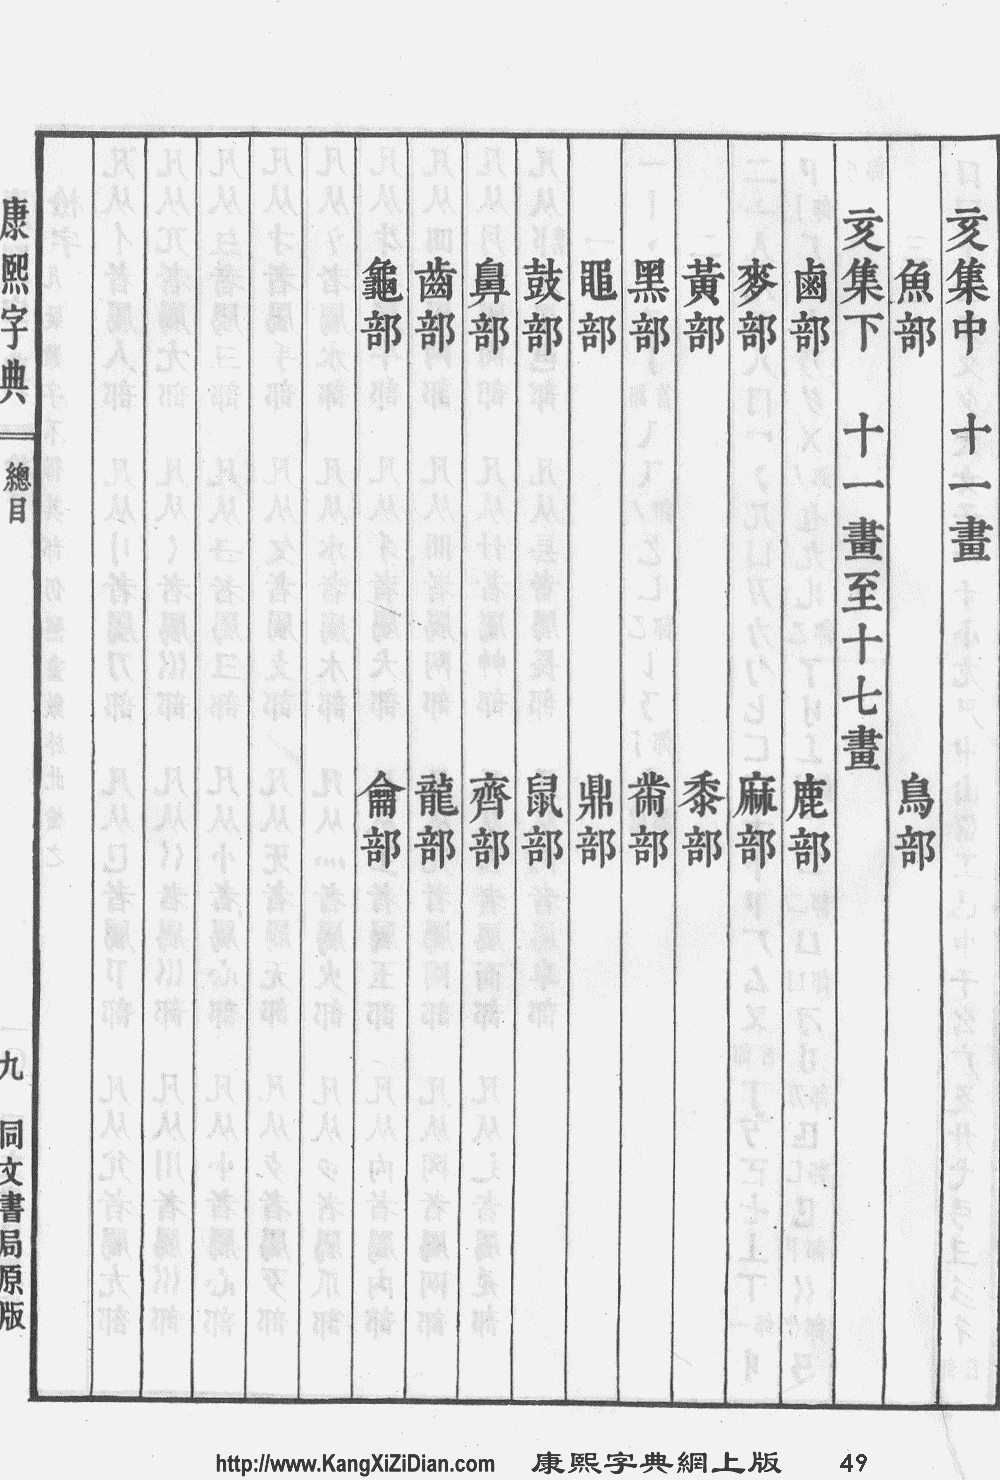 亥集中　十一畫
魚部　鳥部
亥集下　十一畫至十七畫
鹵部　鹿部
麥部　麻部
黃部　黍部
黑部　黹部
黽部　鼎部
鼓部　鼠部
鼻部　齊部
齒部　龍部
龜部　龠部
康熙字典　總目　九　同文書局原版
http://www.KangXiZiDian.com　康熙字典網上版　49